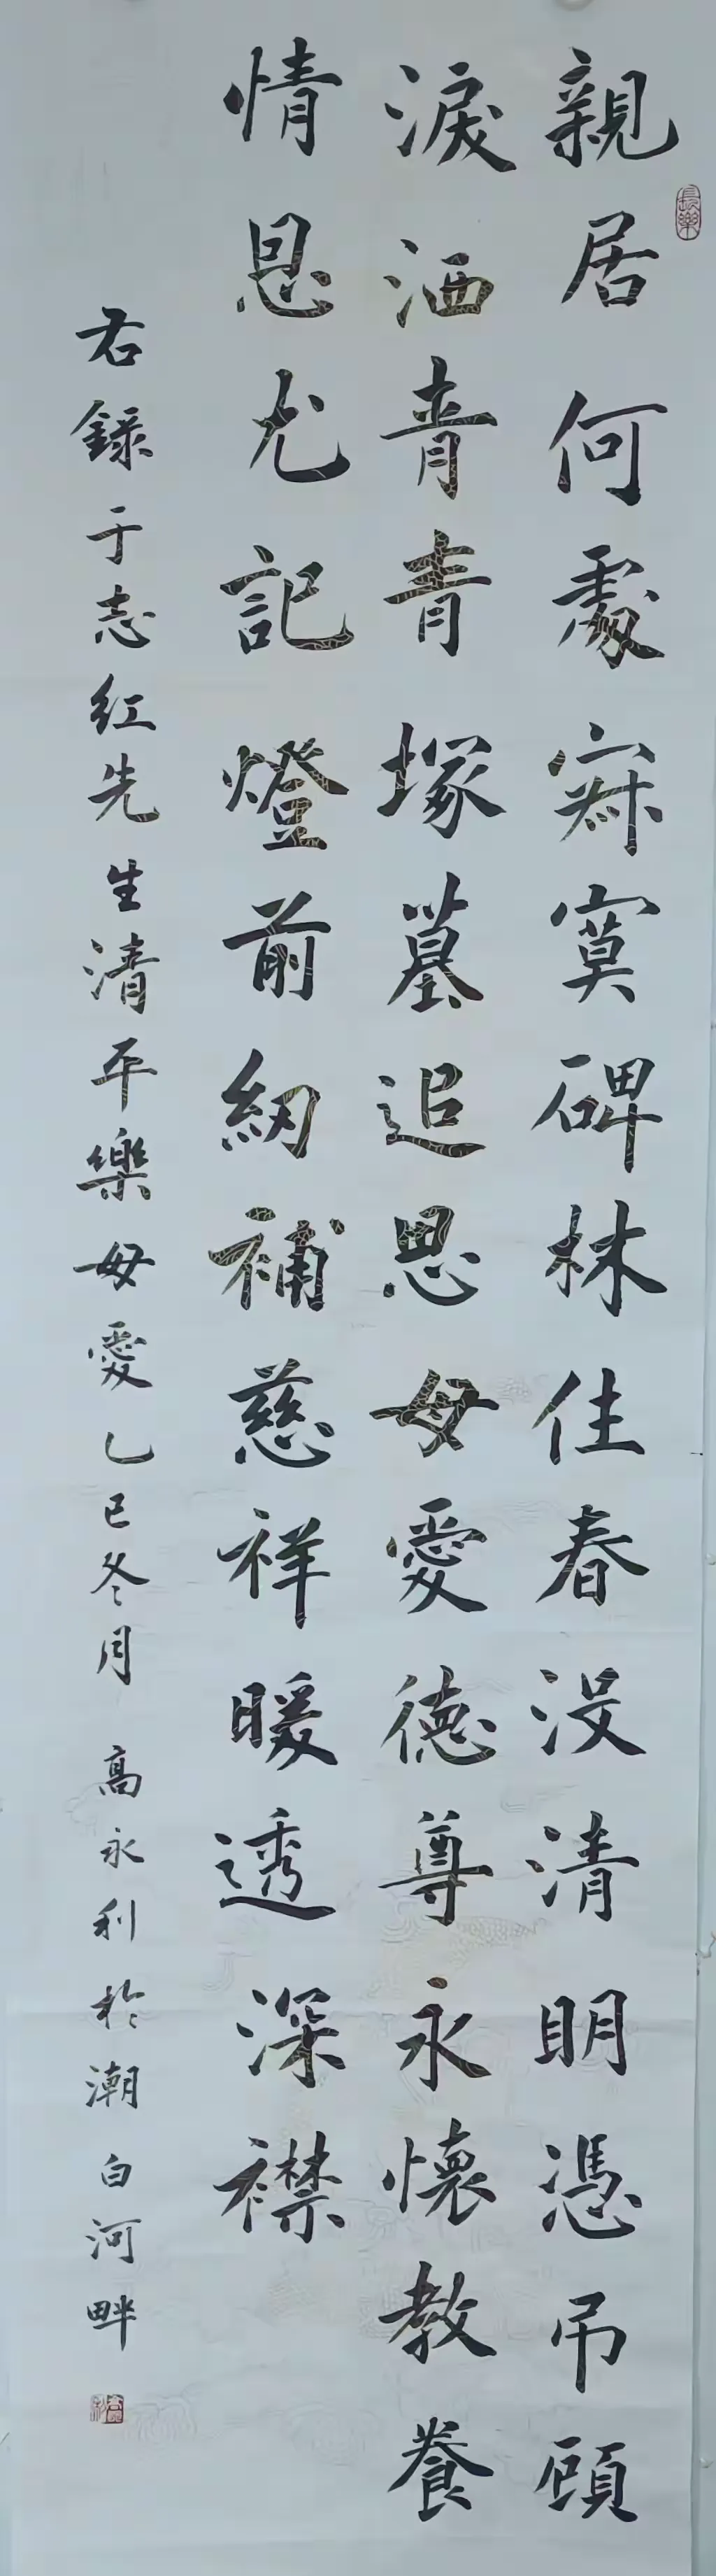 親居何處寂寞碑林住春沒清明憑吊顧
淚洒青青塚墓追思母愛德尊永懷教養
情恩尤記燈前紉補慈祥暖透深襟
右錄于志紅先生清平樂母愛乙巳冬月 高永利於潮白河畔
長樂